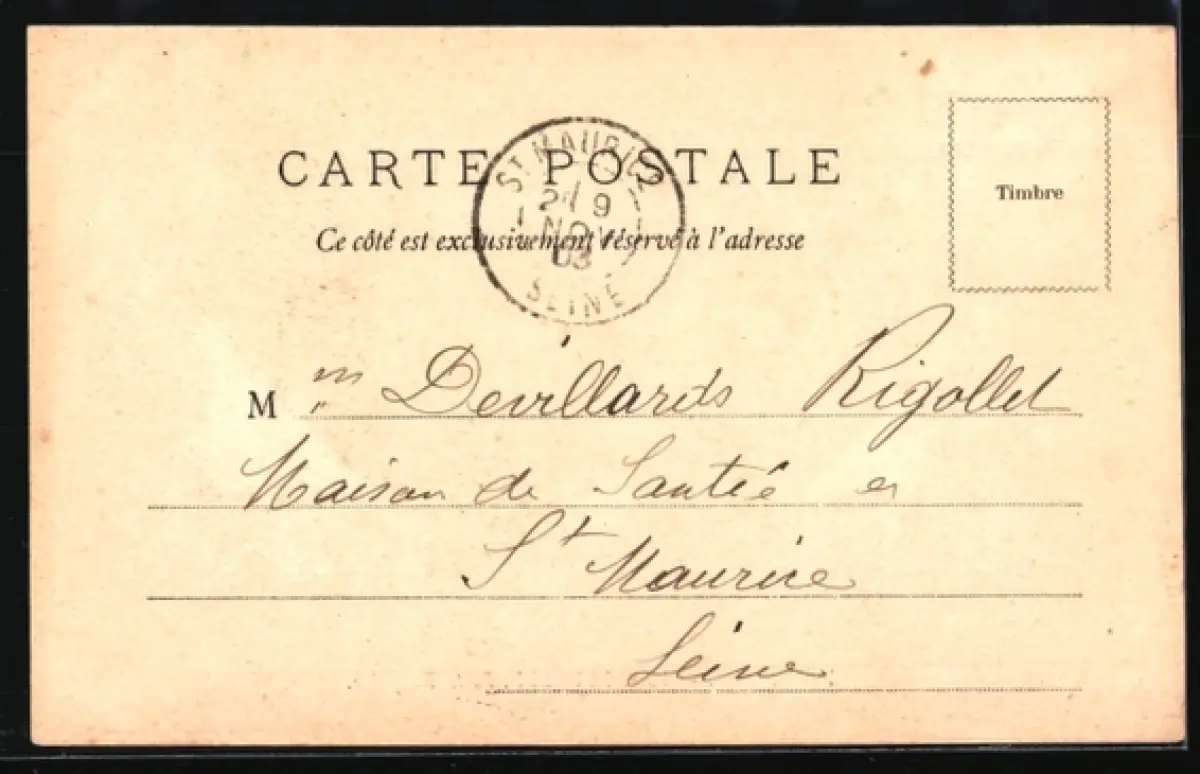 CARTE POSTALE
ST MAURICE
9
NOV
03
SEINE
Ce côté est exclusivement réservé à l'adresse
Timbre
M Devillards Rigollet
Maison de Santé
St Maurice
Seine